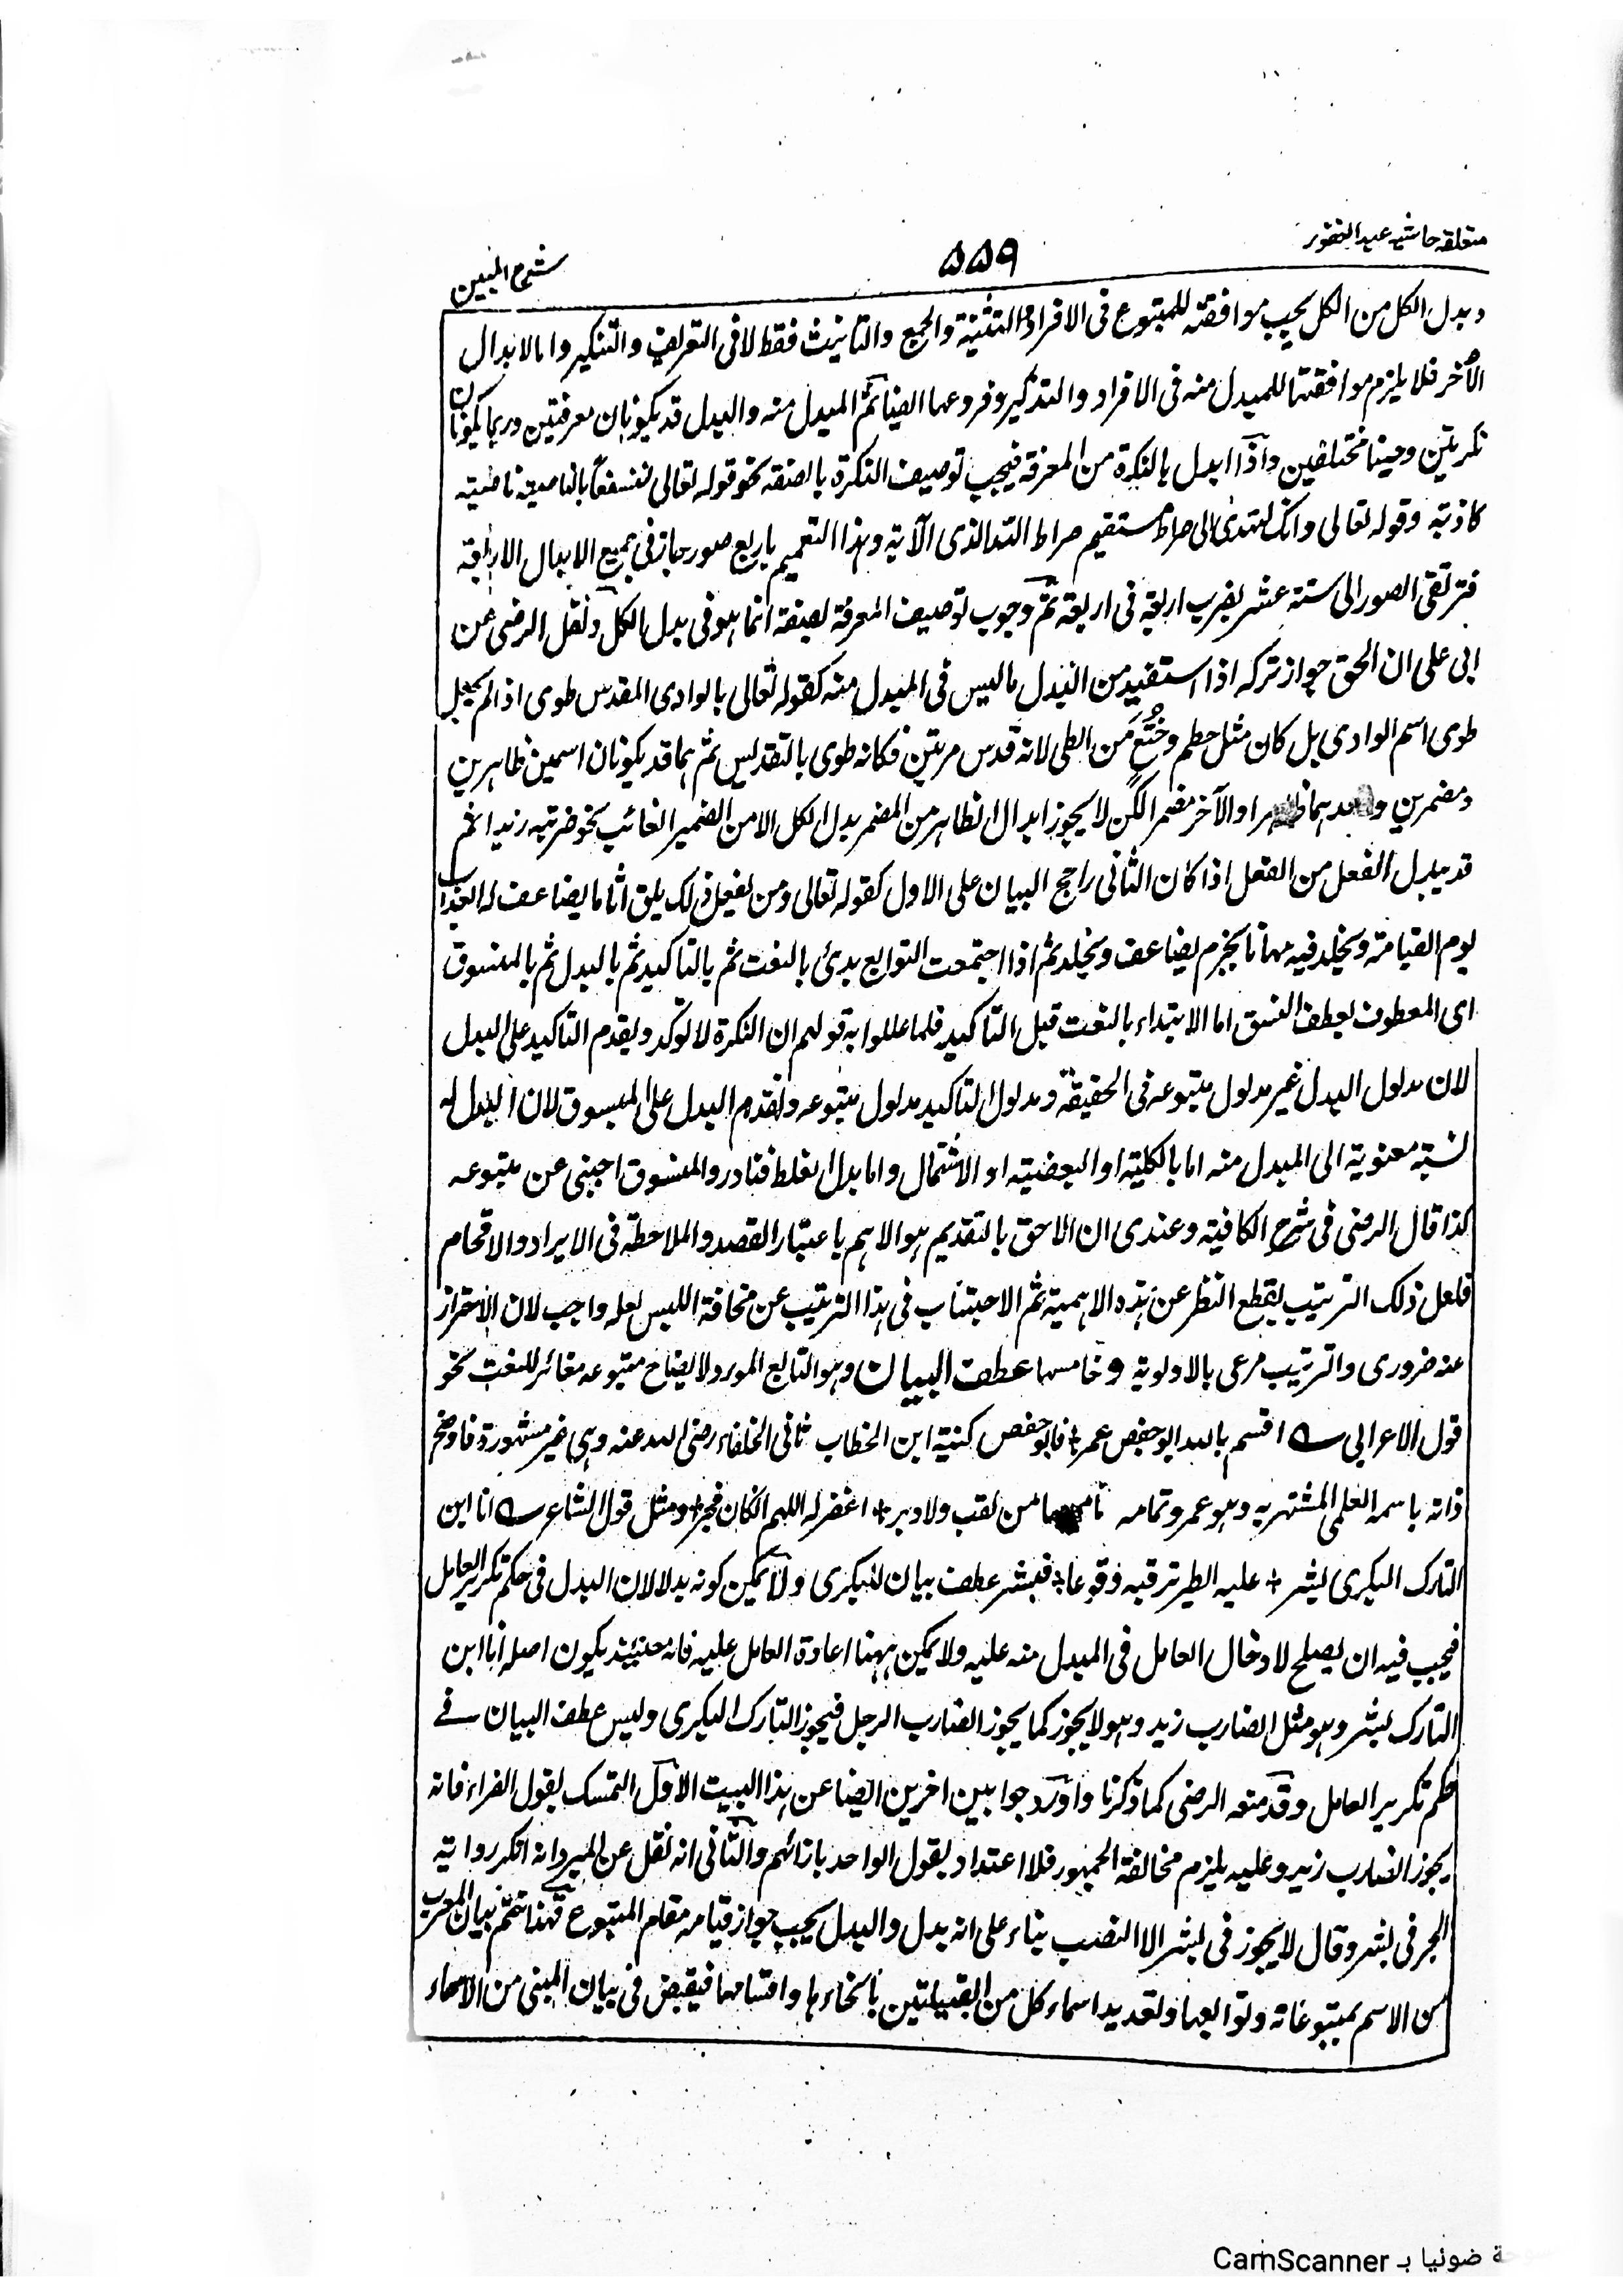 متعلقه حاشيه عبد الغفور
۵۵۹
شرح المبين
وبدل الكل من الكل يجب موافقته للمتبوع فى الافراد والتثنية والجمع والتانيث فقط لا فى التعريف والتنكير واما الابدال
الأُخر فلا يلزم موافقتها للمبدل منه فى الافراد والتذكير وفروعها ايضا ثم المبدل منه والبدل قد يكونان معرفتين وربما يكونان
نكرتين وحينا مختلفين واذا ابدل بالنكرة من المعرفة فيجب توصيف النكرة بالصفة نحو قوله تعالى لنسفعاً بالناصية ناصية
كاذبة وقوله تعالى وانك لتهدى الى صراط مستقيم صراط الله الذى الآية وهذا التعميم باربع صور جاز فى جميع الابدال الاربعة
فترتقى الصور الى ستة عشر بضرب اربعة فى اربعة ثم وجوب توصيف المعرفة بصفة انما هو فى بدل الكل ونقل الرضى عن
ابى على ان الحق جواز تركه اذا استفيد من البدل ما ليس فى المبدل منه كقوله تعالى بالوادى المقدس طوى اذا لم يجعل
طوى اسم الوادى بل كان مثل حطم وخُتَع من الطى لانه قدس مرتين فكانه طوى بالتقديس ثم هما قد يكونان اسمين ظاهرين
ومضمرين و احدهما ظاهرا والآخر مضمرا لكن لا يجوز ابدال الظاهر من المضمر بدل الكل الا من الضمير الغائب نحو ضربته زيدا ثم
قد يبدل الفعل من الفعل اذا كان الثانى راجح البيان على الاول كقوله تعالى ومن يفعل ذلك يلق اثاما يضاعف له العذاب
يوم القيامة ويخلد فيه مهانا بجزم يضاعف ويخلد ثم اذا اجتمعت التوابع بدئ بالنعت ثم بالتاكيد ثم بالبدل ثم بالمنسوق
اى المعطوف بعطف النسق اما الابتداء بالنعت قبل التاكيد فلما عللوا به قولهم ان النكرة لا توكد ويقدم التاكيد على البدل
لان مدلول البدل غير مدلول متبوعه فى الحقيقة ومدلول التاكيد مدلول متبوعه وتقدم البدل على المنسوق لان البدل له
نسبة معنوية الى المبدل منه اما بالكلية او البعضية او الاشتمال واما بدل الغلط فنادر والمنسوق اجنبى عن متبوعه
كذا قال الرضى فى شرح الكافية وعندى ان الاحق بالتقديم هو الاهم باعتبار القصد والملاحظة فى الايراد والاقحام
فلعل ذلك الترتيب بقطع النظر عن هذه الاهمية ثم الاجتناب فى هذا الترتيب عن مخافة اللبس لعله واجب لان الاحتراز
عنه ضرورى والترتيب مرعى بالاولوية وخامسها عطف البيان وهو التابع المورد لايضاح متبوعه مغائر للنعت نحو
قول الاعرابى ؎ اقسم بالله ابو حفص عمر + فابو حفص كنية ابن الخطاب ثانى الخلفاء رضى الله عنه وهى غير مشهورة فاوضح
ذاته باسمه العلمى المشتهر به وهو عمر وتمامه ما مسها من نقب ولا دبر + اغفر له اللهم ان كان فجر + ومثل قول الشاعر ؎ انا ابن
التارك البكرى بشر + عليه الطير ترقبه وقوعا + فبشر عطف بيان للبكرى ولا يمكن كونه بدلا لان البدل فى حكم تكرير العامل
فيجب فيه ان يصلح لادخال العامل فى المبدل منه عليه ولا يمكن ههنا اعادة العامل عليه فانه حينئذ يكون اصله انا ابن
التارك بشر وهو مثل الضارب زيد وهو لا يجوز كما يجوز الضارب الرجل فيجوز التارك البكرى وليس عطف البيان فے
حكم تكرير العامل وقد منعه الرضى كما ذكرنا واورد جوابين اخرين ايضا عن هذا البيت الاول التمسك بقول الفراء فانه
يجوز الضارب زيد وعليه يلزم مخالفة الجمهور فلا اعتداد بقول الواحد بازائهم والثانى انه نقل عن المبرد انه انكر رواية
الجر فى بشر وقال لا يجوز فى بشر الا النصب بناء على انه بدل والبدل يجب جواز قيامه مقام المتبوع فهذا تتمم بيان المعرب
من الاسم بمتبوعاته وتوابعها وتعديد اسماء كل من القبيلتين بانحاءها واقسامها فيقبض فى بيان المبنى من الاسماء
ضوئيا بـ CamScanner